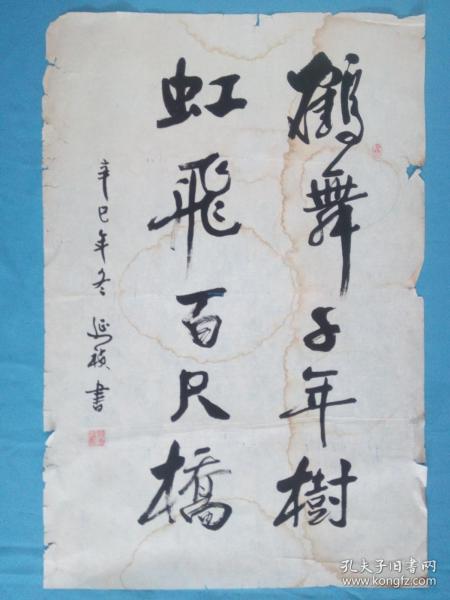 鶴舞千年樹
虹飛百尺橋
辛巳年冬 延 書
孔夫子旧书网
www.kongfz.com